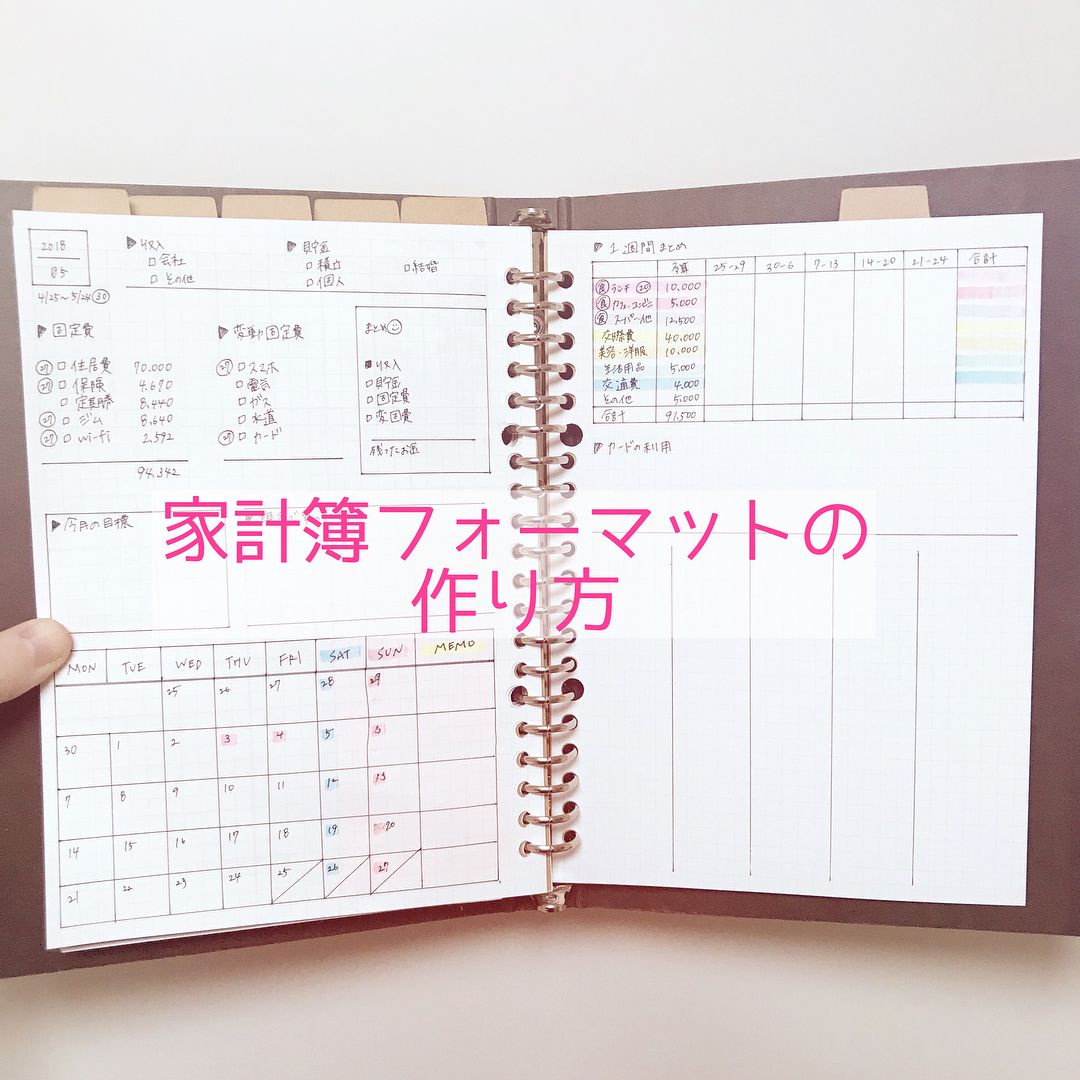 2018
05
4/25〜5/24 ㉚
▶収入
□会社
□その他
▶貯金
□積立
□個人
□結婚
▶固定費
㉗□住居費 70.000
㉗□保険 4.670
□定期券 8,440
㉗□ジム 8,640
㉗□wi-fi 2,592
94,342
▶変動固定費
㉗□スマホ
□電気
□ガス
□水道
㉗□カード
まとめ
■収入
□貯金
□固定費
□変固費
残ったお金
▶今月の目標
家計簿フォーマットの
作り方
MON TUE WED THU FRI SAT SUN MEMO
25 26 27 28 29
30 1 2 3 4 5 6
7 8 9 10 11 12 13
14 15 16 17 18 19 20
21 22 23 24 25 26 27
▶1週間まとめ
予算 25-29 30-6 7-13 14-20 21-24 合計
食ランチ⑳ 10,000
食カフェ・コンビニ 5,000
食スーパー他 12,500
交際費 40,000
美容・洋服 10,000
生活用品 5,000
交通費 4,000
その他 5,000
合計 91,500
▶カードの利用